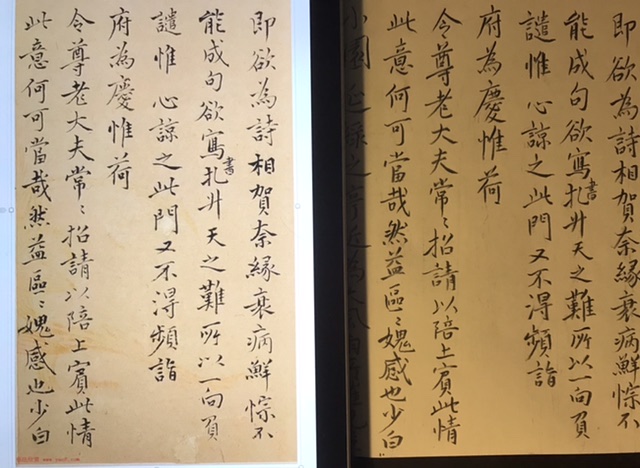 即欲為詩相賀奈緣衰病鮮悰不
能成句欲寫書扎升天之難所以一向負
譴惟心諒之此門又不淂頻詣
府為慶惟荷
令尊老大夫常〻招請以陪上賓此情
此意何可當哉然益區〻媿感也少白
即欲為詩相賀奈緣衰病鮮悰不
能成句欲寫書扎升天之難所以一向負
譴惟心諒之此門又不淂頻詣
府為慶惟荷
令尊老大夫常〻招請以陪上賓此情
此意何可當哉然益區〻媿感也少白
小園